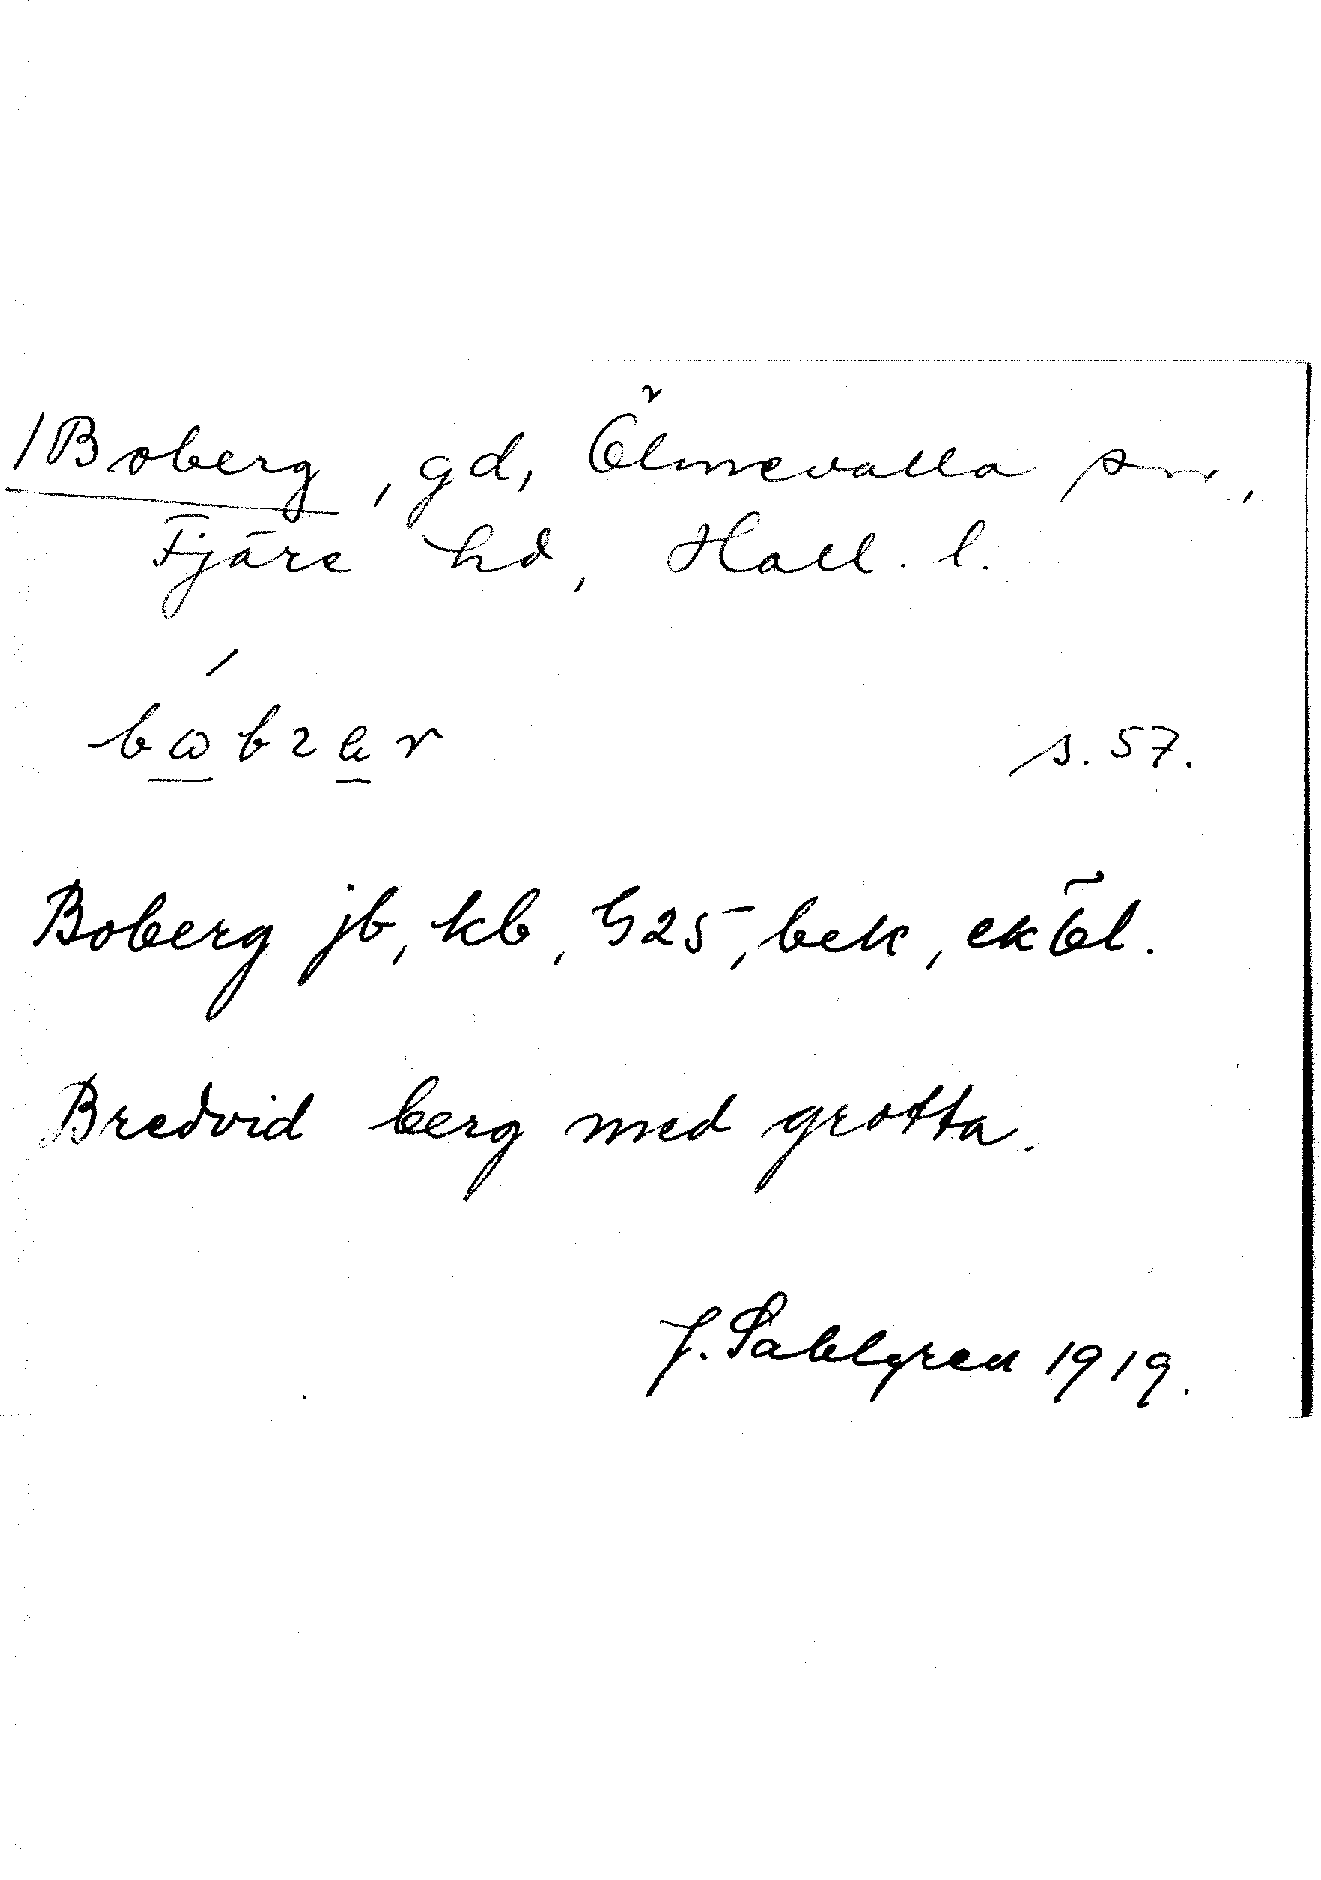 /Boberg, gd, Ölmevalla sn,
Fjäre hd, Hall. l.
s. 57.
Boberg jb, kb, h25, bek, ekbl.
Bredvid berg med grotta.
J. Sahlgren 1919.